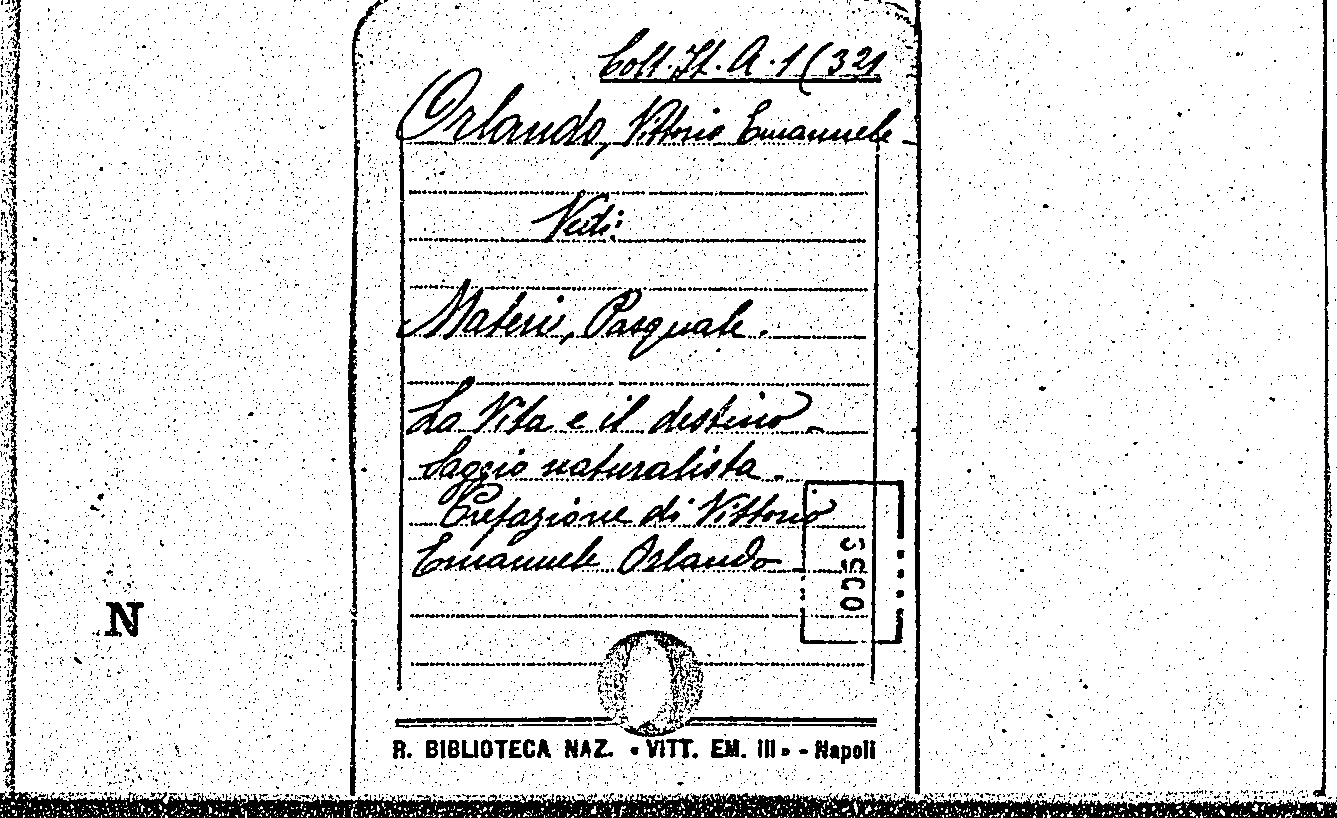 Coll. It. A. 1 (32)
Orlando, Vittorio Emanuele
Vedi:
Materi, Pasquale.
La Vita e il destino.
Saggio naturalista.
Prefazione di Vittorio
Emanuele Orlando
N
R. BIBLIOTECA NAZ. «VITT. EM. III» - Napoli